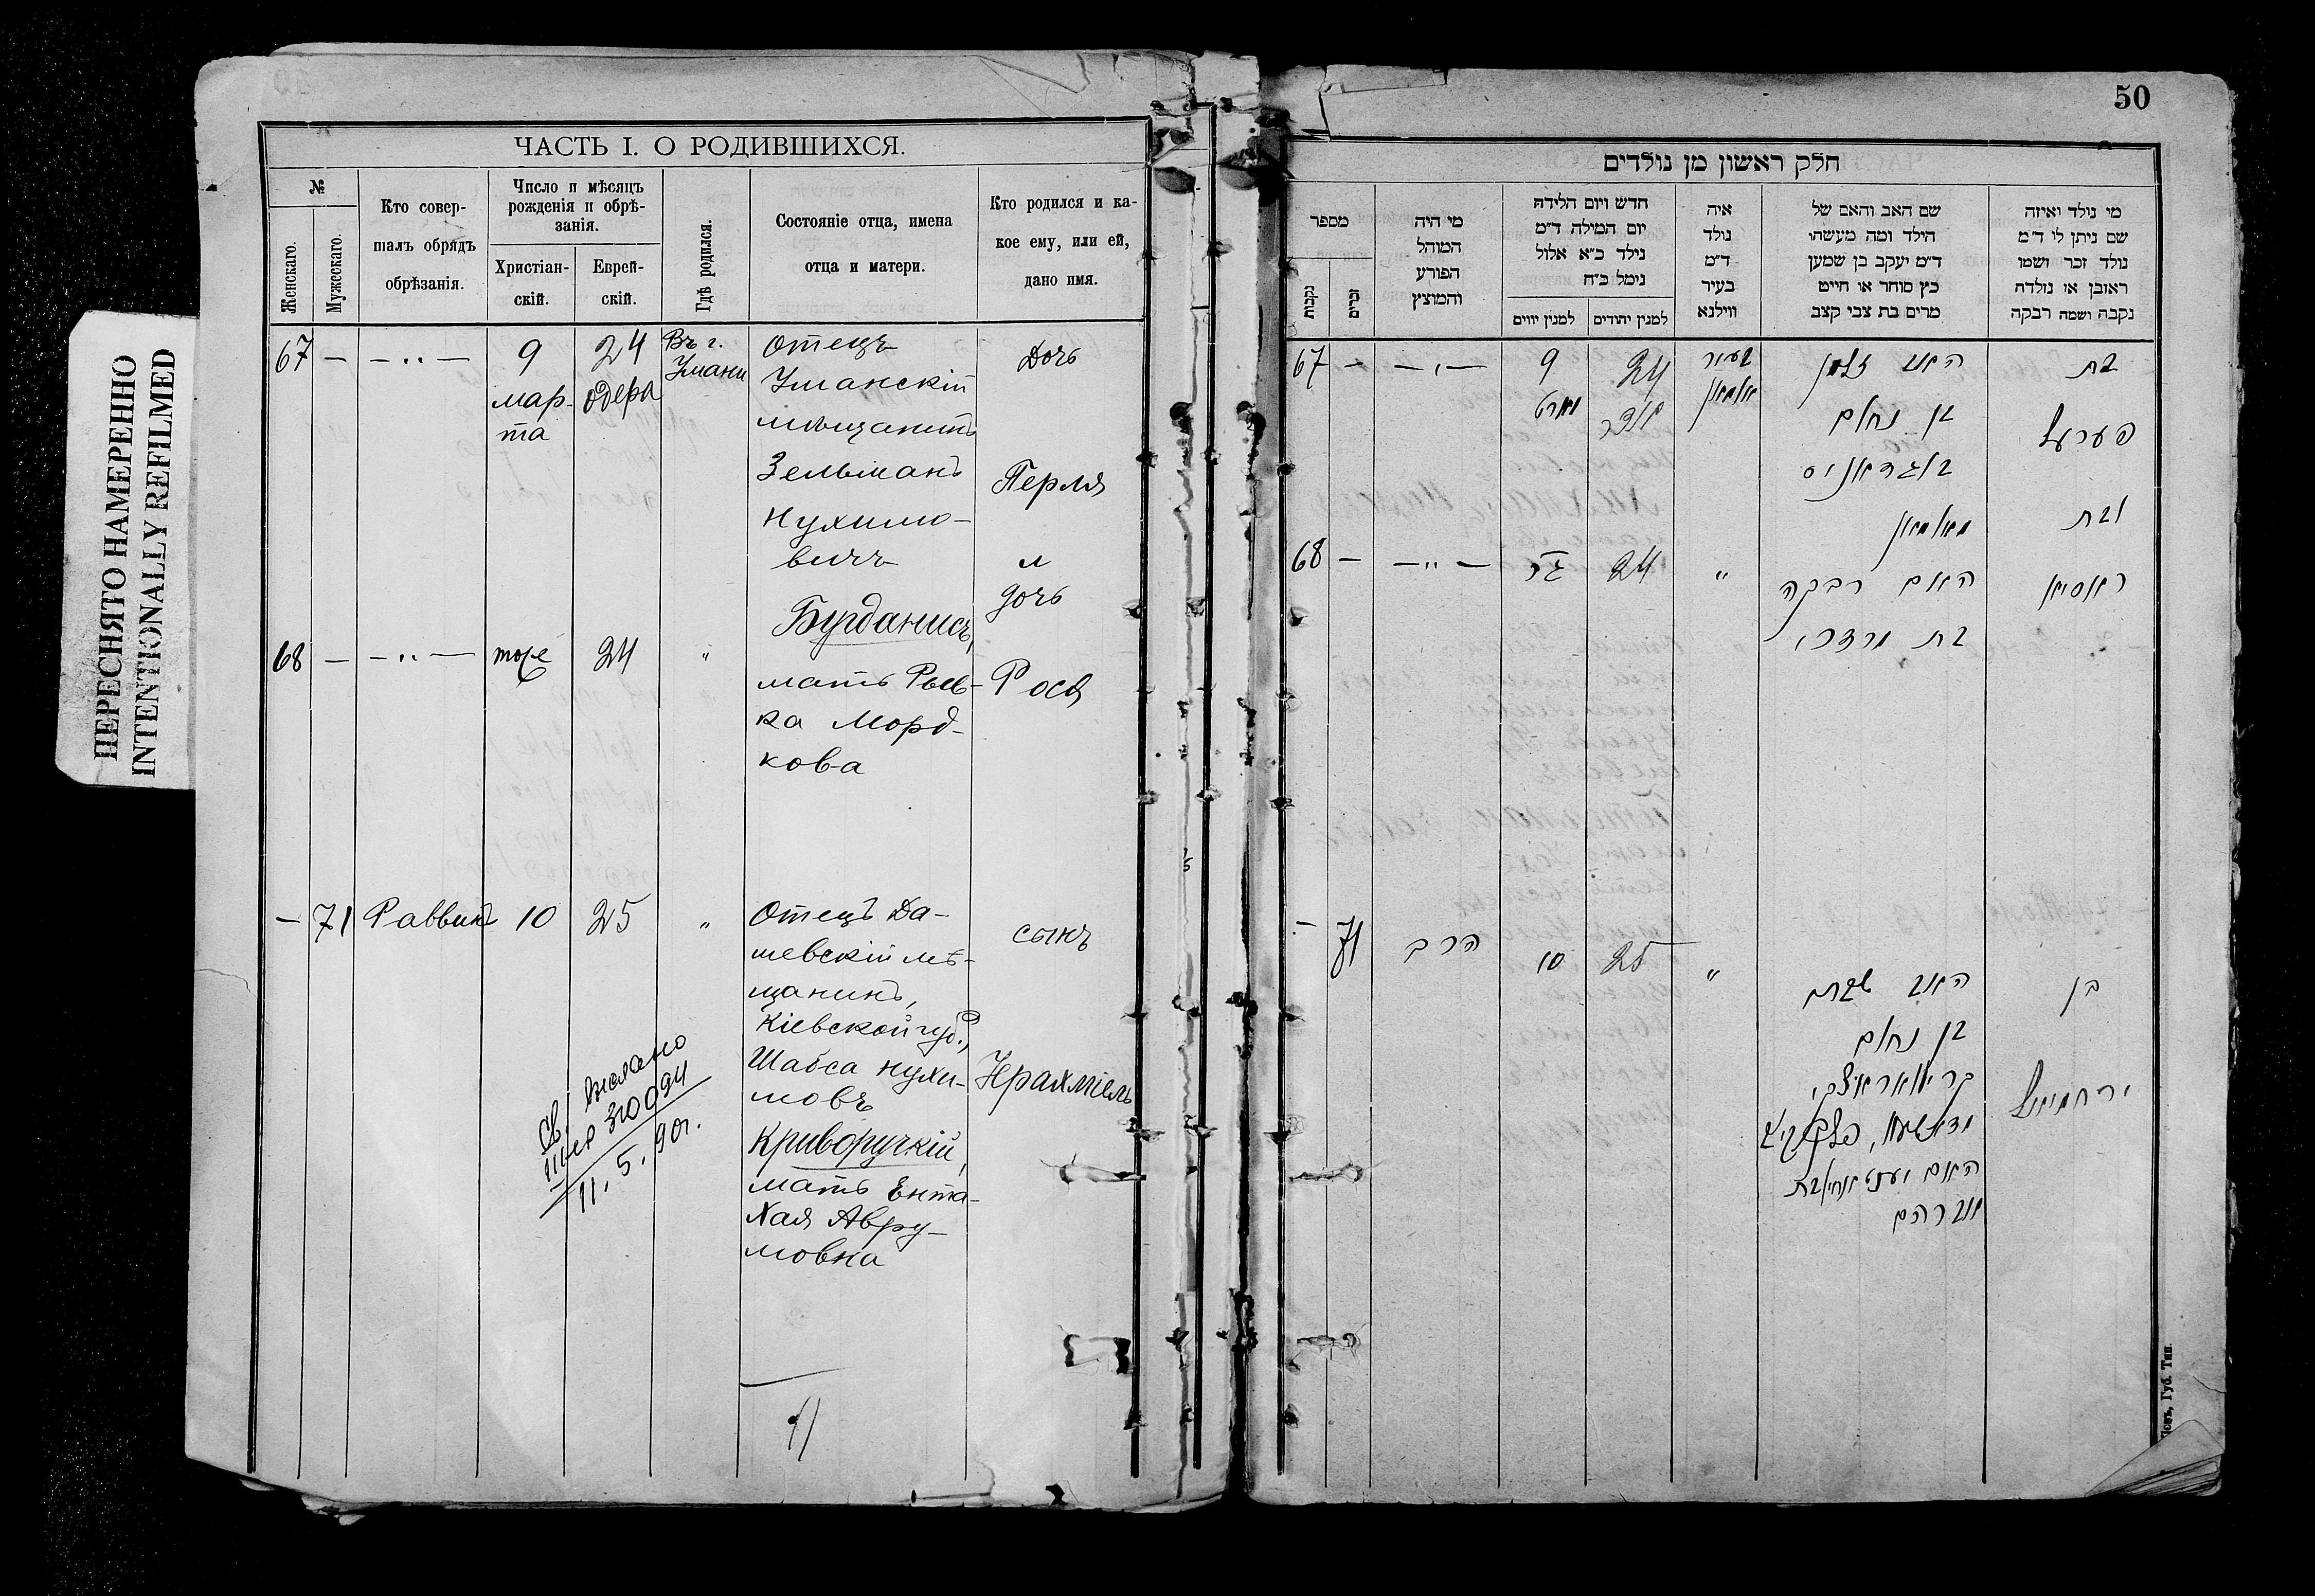 50
ПЕРЕСНЯТО НАМЕРЕННО
INTENTIONALLY REFILMED
ЧАСТЬ I. О РОДИВШИХСЯ.
№
Женскаго.
Мужескаго.
Кто совер-
шалъ обрядъ
обрѣзанія.
Число и мѣсяцъ
рожденія и обрѣ-
занія.
Христіан-
скій.
Еврей-
скій.
Гдѣ родился.
Состояніе отца, имена
отца и матери.
Кто родился и ка-
кое ему, или ей,
дано имя.
67 — — „ —
9
мар-
та
24
Одера
Въ г.
Умани
Отецъ
Уманскій
мѣщанинъ
Зельманъ
Нухимо-
вичъ
Бурданисъ,
мать Рыв-
ка Морд-
кова
Дочь
Перля
и
дочь
Рося
68 — — „ — тоже 24 „
— 71 Раввинъ 10 25 „
Отецъ Да-
шевскій мѣ-
щанинъ,
Кіевской губ.,
Шабса Нухи-
мовъ
Криворучкій,
мать Ента-
Хая Авру-
мовна
сынъ
Ирахміель
11.5.90г.
חלק ראשון מן נולדים
מספר
נקבות
זכרים
מי היה
המוהל
הפורע
והמוצץ
חדש ויום הלידה
יום המילה ד״מ
נילד כ״א אלול
נימל כ״ח
למנין יווים
למנין יהודים
איה
נולד
ד״מ
בעיר
ווילנא
שם האב והאם של
הילד ומה מעשהו
ד״מ יעקב בן שמען
כץ סוחר או חייט
מרים בת צבי קצב
מי נולד ואיזה
שם ניתן לו ד״מ
נולד זכר ושמו
ראובן או נולדה
נקבה ושמה רבקה
67 — — „ —
9
מארט
24
אדר
בעיר
אומאן
האב זלמן
בן נחום
בורדאניס
מאומאן
האם רבקה
בת מרדכי
בת
פערעל
ובת
ראסיא
68 — — „ — 24 „
— 71 הרב 10 25 „
האב שבתי
בן נחום
האם יענטא חי׳ בת
אברהם
בן
ירחמיאל
Губ. Тип.